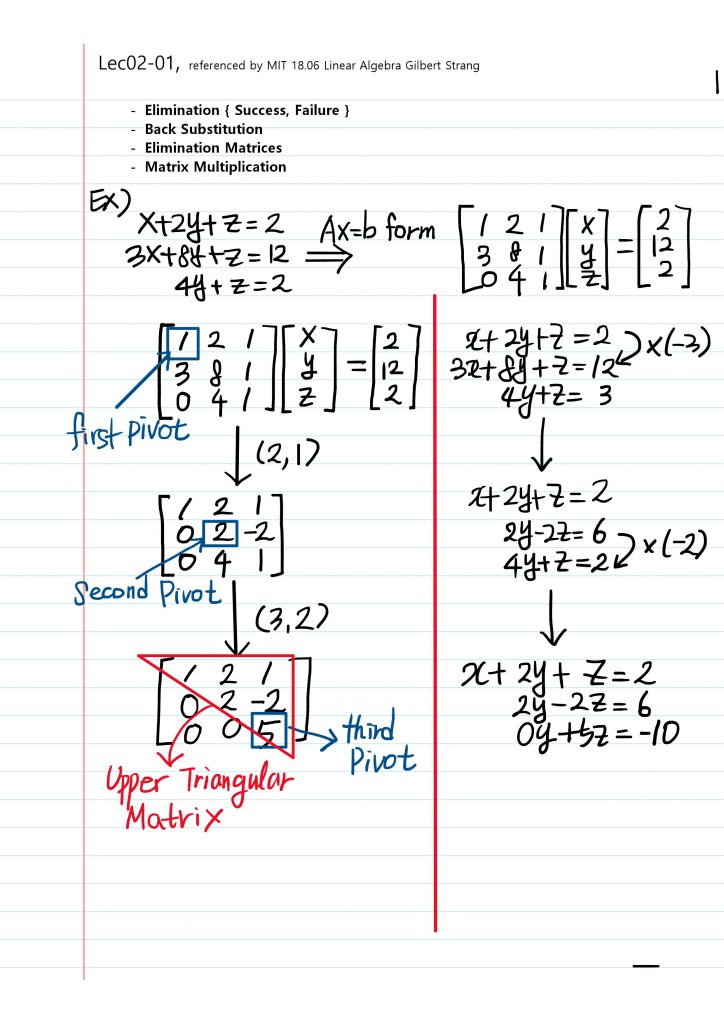 Lec02-01, referenced by MIT 18.06 Linear Algebra Gilbert Strang
1
- Elimination { Success, Failure }
- Back Substitution
- Elimination Matrices
- Matrix Multiplication
Ex)
x+2y+z=2
3x+8y+z=12
4y+z=2
⇒ Ax=b form
[1 2 1] [x] = [2]
[3 8 1] [y] = [12]
[0 4 1] [z] = [2]
[1 2 1] [x] = [2]
[3 8 1] [y] = [12]
[0 4 1] [z] = [2]
first pivot
↓ (2,1)
[1 2 1]
[0 2 -2]
[0 4 1]
Second Pivot
↓ (3,2)
[1 2 1]
[0 2 -2]
[0 0 5]
third
Pivot
Upper Triangular
Matrix
x+2y+z=2
3x+8y+z=12
×(-3)
4y+z=3
↓
x+2y+z=2
2y-2z=6
×(-2)
4y+z=2
↓
x+2y+z=2
2y-2z=6
0y+5z=-10